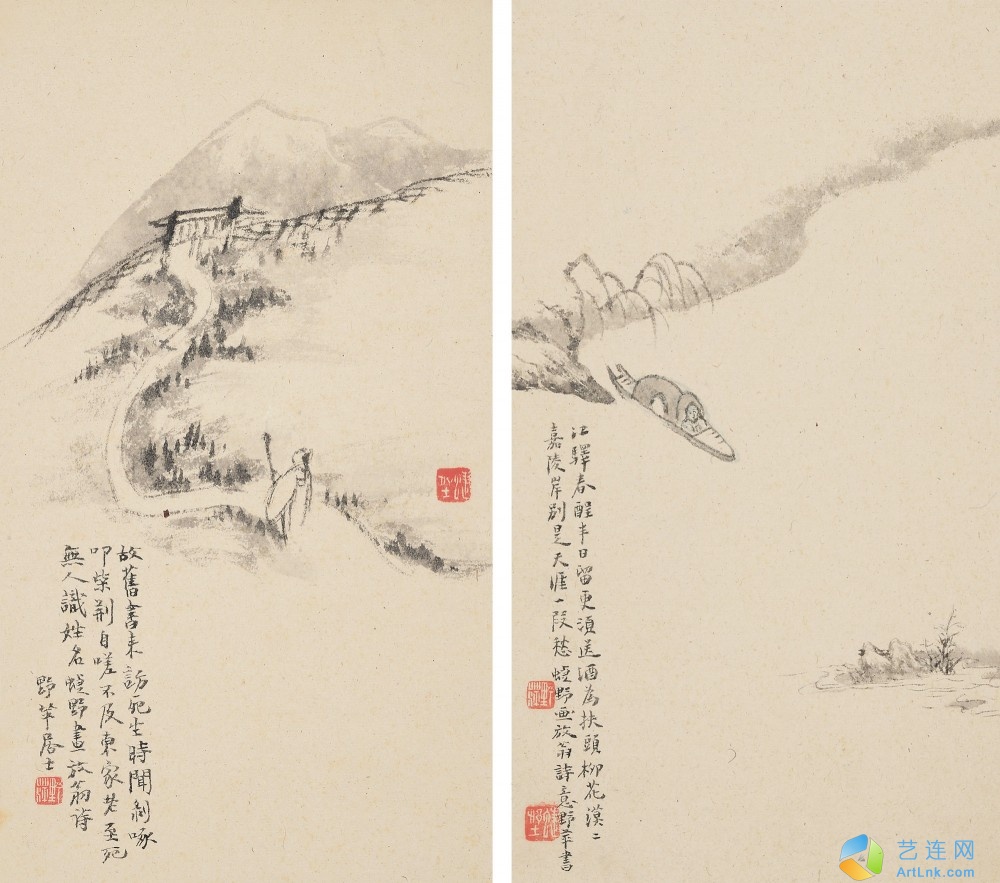 故舊書来訪死生時聞剝啄
叩柴荆自嗟不及東家老至死
無人識姓名野畫放翁诗
野苹居士
江驛春酲半日留更須送酒為扶頭柳花漠〻
嘉陵岸別是天涯一段愁野画放翁詩意野苹書
艺连网
ArtLnk.com